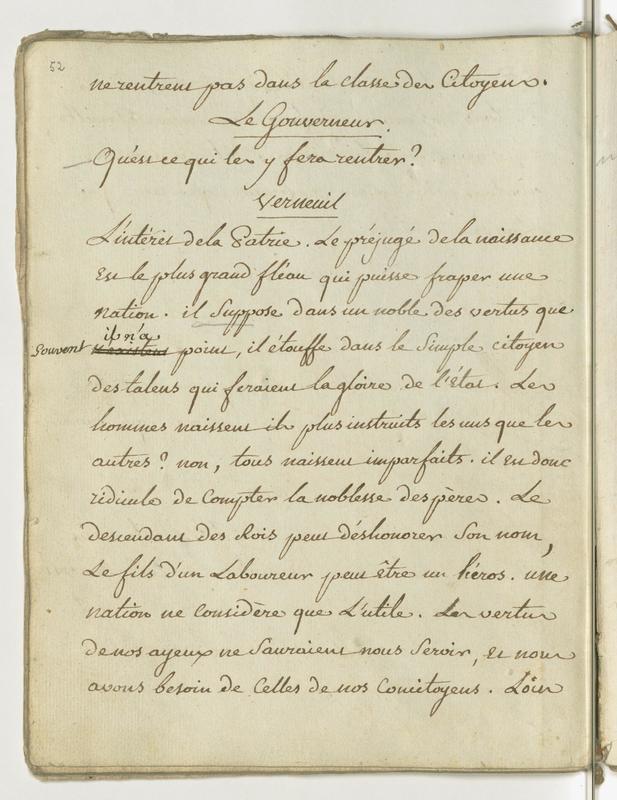 52
ne rentrent pas dans la classe des Citoyens.
Le Gouverneur.
Qu'est ce qui les y fera rentrer?
Verneuil
L'intérêt de la Patrie. Le préjugé de la naissance
Est le plus grand fléau qui puisse fraper une
nation. il suppose dans un noble des vertus que
souvent il n'a point, il étouffe dans le simple citoyen
des talens qui feraient la gloire de l'état. Les
hommes naissent ils plus instruits les uns que les
autres? non, tous naissent imparfaits. il est donc
ridicule de Compter la noblesse des pères. Le
descendant des Rois peut déshonorer son nom,
Le fils d'un Laboureur peut être un héros. une
nation ne Considère que L'utile. Les vertus
de nos ayeux ne sauraient nous servir, et nous
avons besoin de Celles de nos Concitoyens. Loin